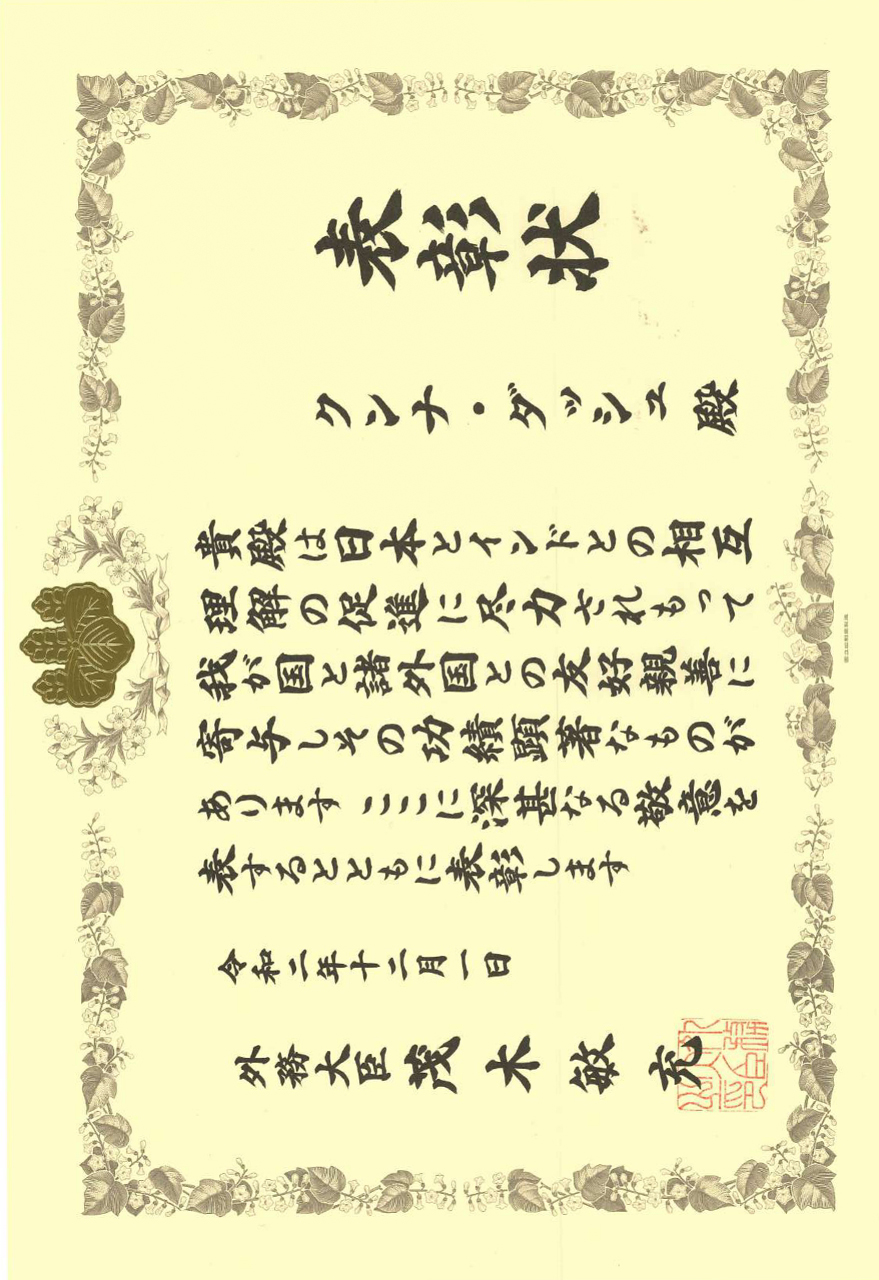 表彰状
クンナ・ダッシュ殿
貴殿は日本とインドとの相互
理解の促進に尽力されもって
我が国と諸外国との友好親善に
寄与しその功績顕著なものが
あります ここに深甚なる敬意を
表するとともに表彰します
令和二年十二月一日
外務大臣 茂木敏充